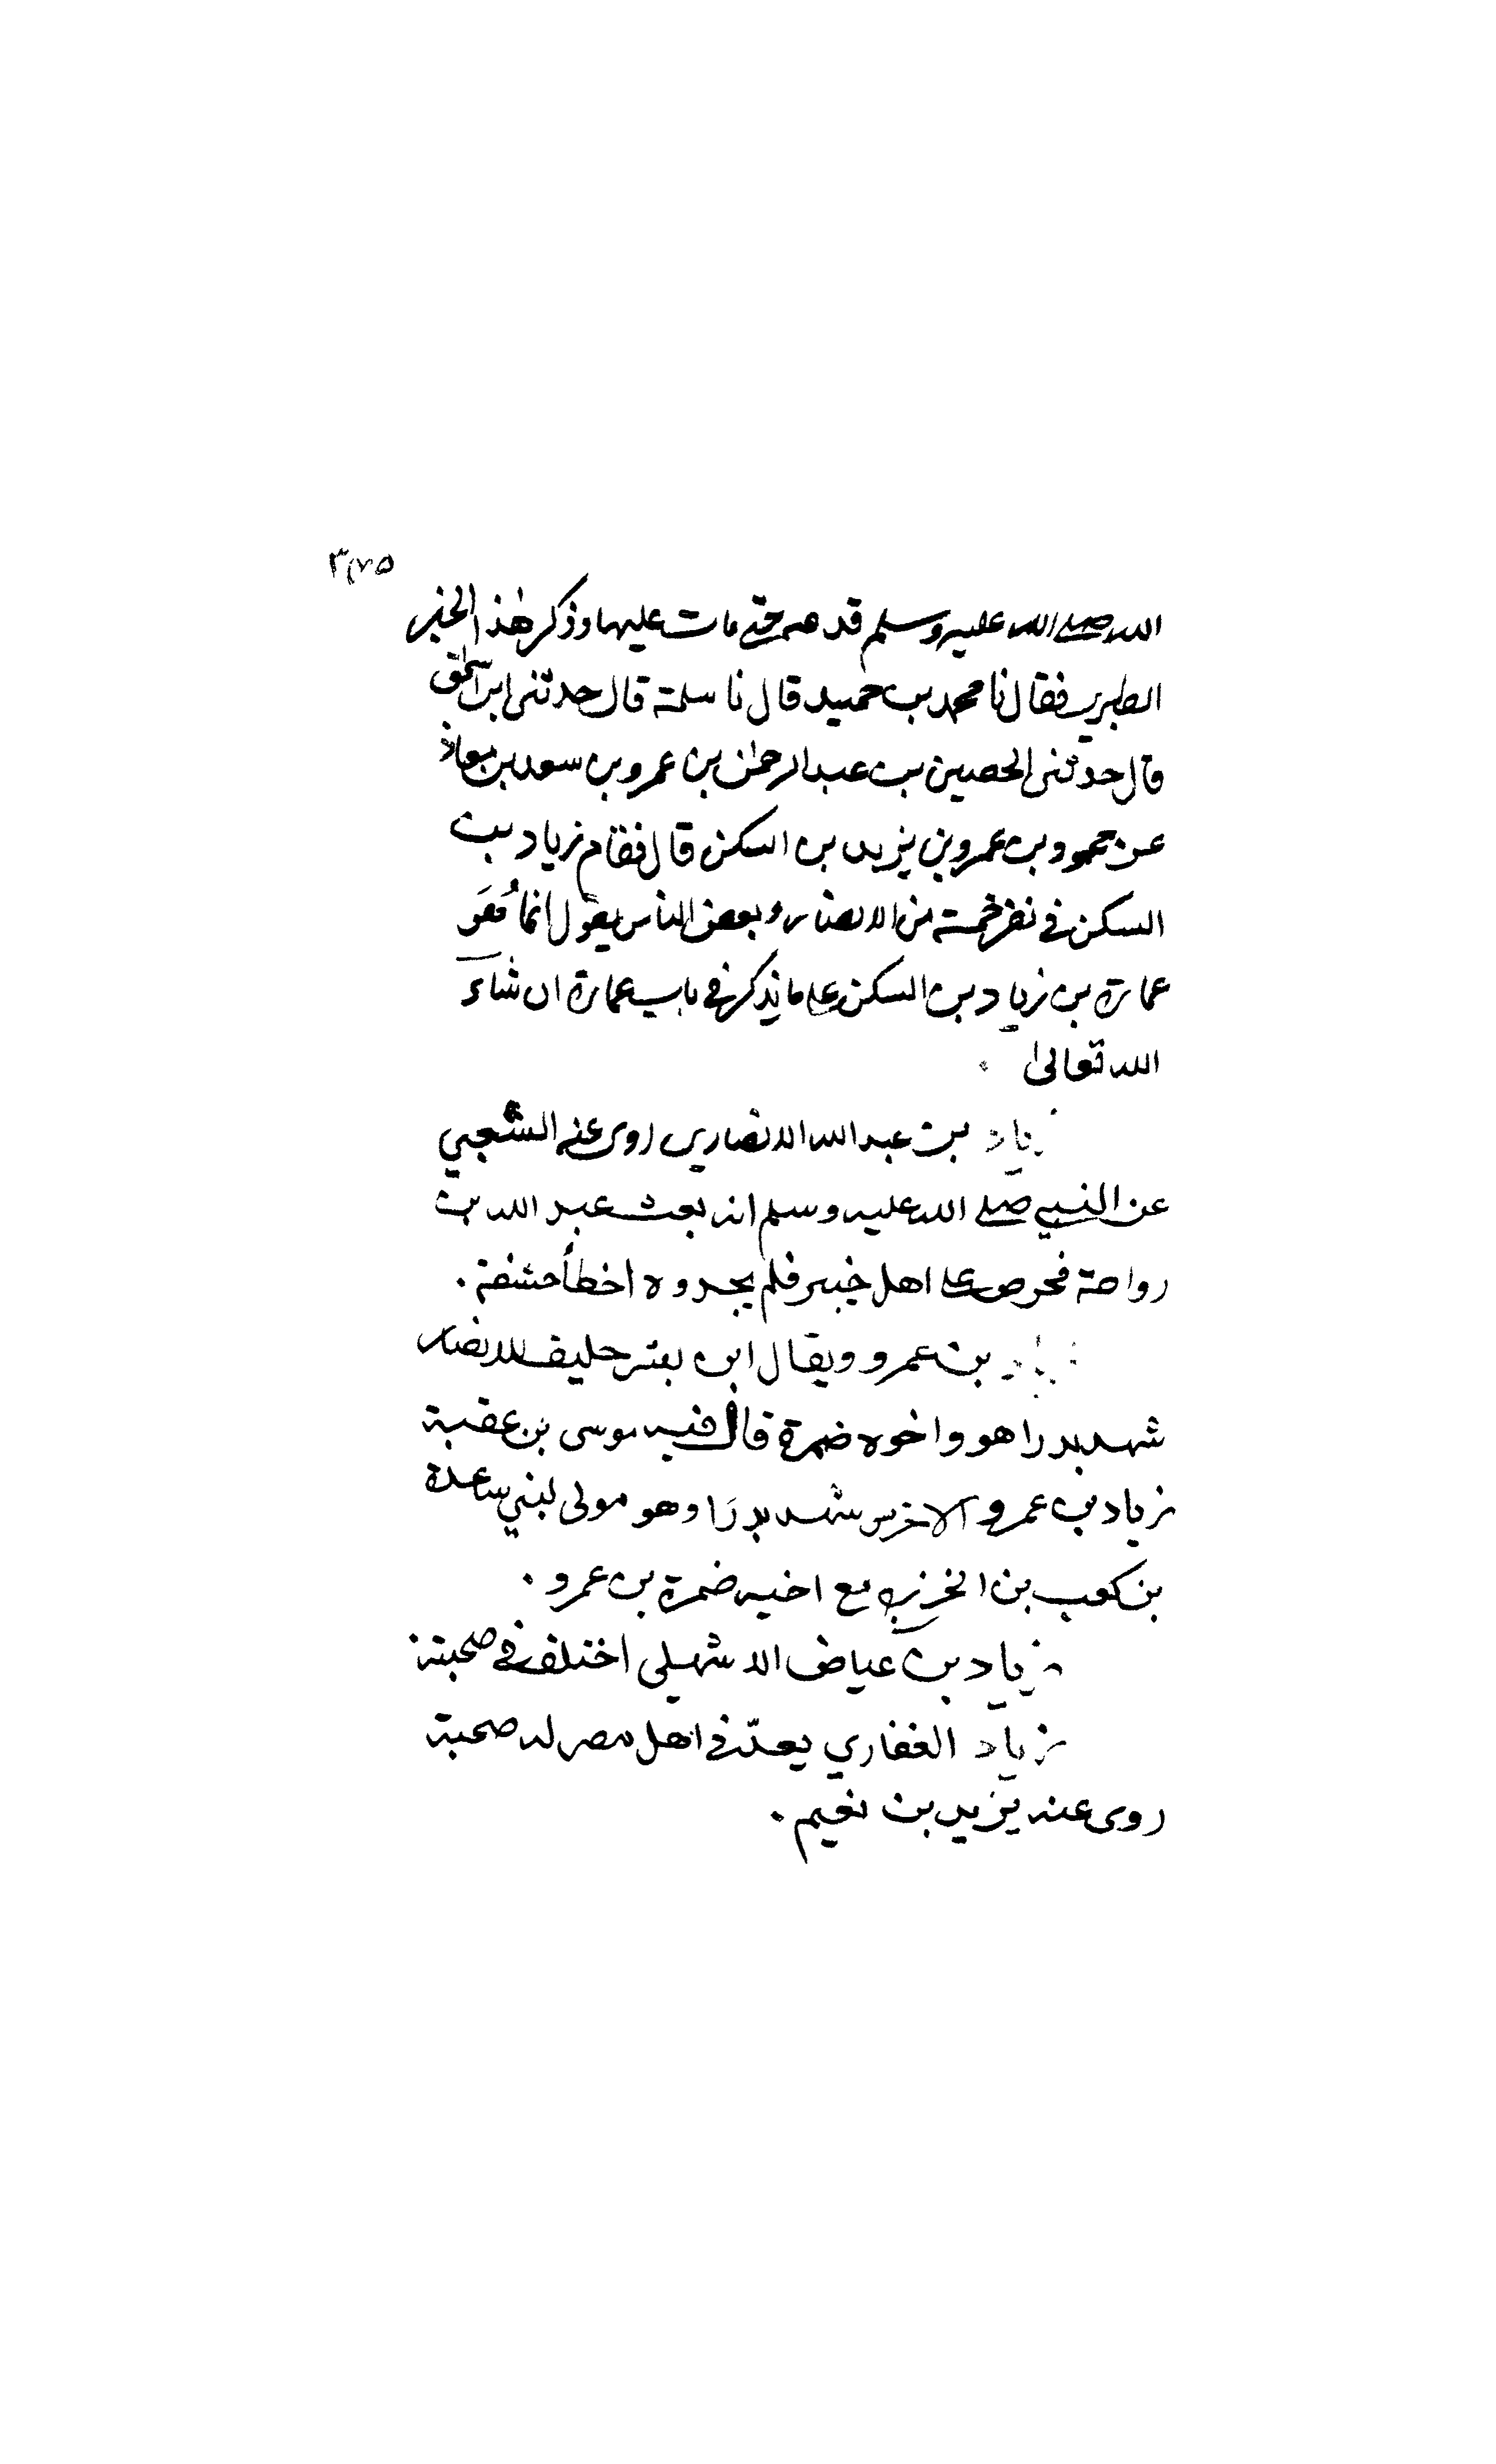 ٣٧٥
الله صلے الله عليه وسلم قدمه حتے مات عليها وذكر هٰذا الخبر
الطبري فقال نا محمد بن حميد قال نا سلمة قال حدثني ابن اسحٰق
قال حدثني الحصين بن عبد الرحمٰن بن عمرو بن سعد بن معاذ
عن محمود بن عمرو بن يزيد بن السكن قال فقام زياد بن
السكن في نفر خمسة من الانصار وبعض الناس يقول انما هُوَ
عمارة بن زياد بن السكن علے ما نذكره في باب عمارة ان شاء
الله تعالىٰ ٠
زياد بن عبد الله الانصاري روى عنه الشعبي
عن النبي صلے الله عليه وسلم انه بعث عبد الله بن
رواحة فخرص علے اهل خيبر فلم يجدوه اخطأ حشفة ٠
زياد بن عمرو ويقال ابن بشر حليف للانصار
شهد بدرا هو واخوه ضمرة قال فيه موسى بن عقبة
زياد بن عمرو الاخرس شهد بدرًا وهو مولى لبني ساعدة
بن كعب بن الخزرج مع اخيه ضمرة بن عمرو ٠
زياد بن عياض الاشهلي اختلف في صحبته ٠
زياد الغفاري يعدّ في اهل مصر له صحبة
روى عنه يزيد بن نعيم ٠